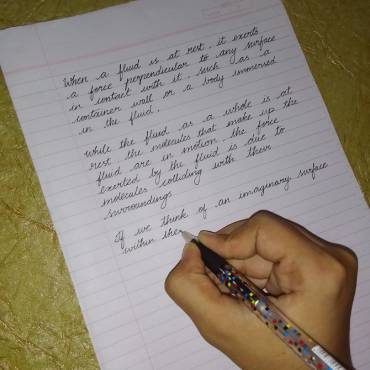 When a fluid is at rest, it exerts
a force perpendicular to any surface
in contact with it, such as a
container wall or a body immersed
in the fluid.
While the fluid as a whole is at
rest the molecules that make up the
fluid are in motion, the force
exerted by the fluid is due to
molecules colliding with their
surroundings
If we think of an imaginary surface
within the